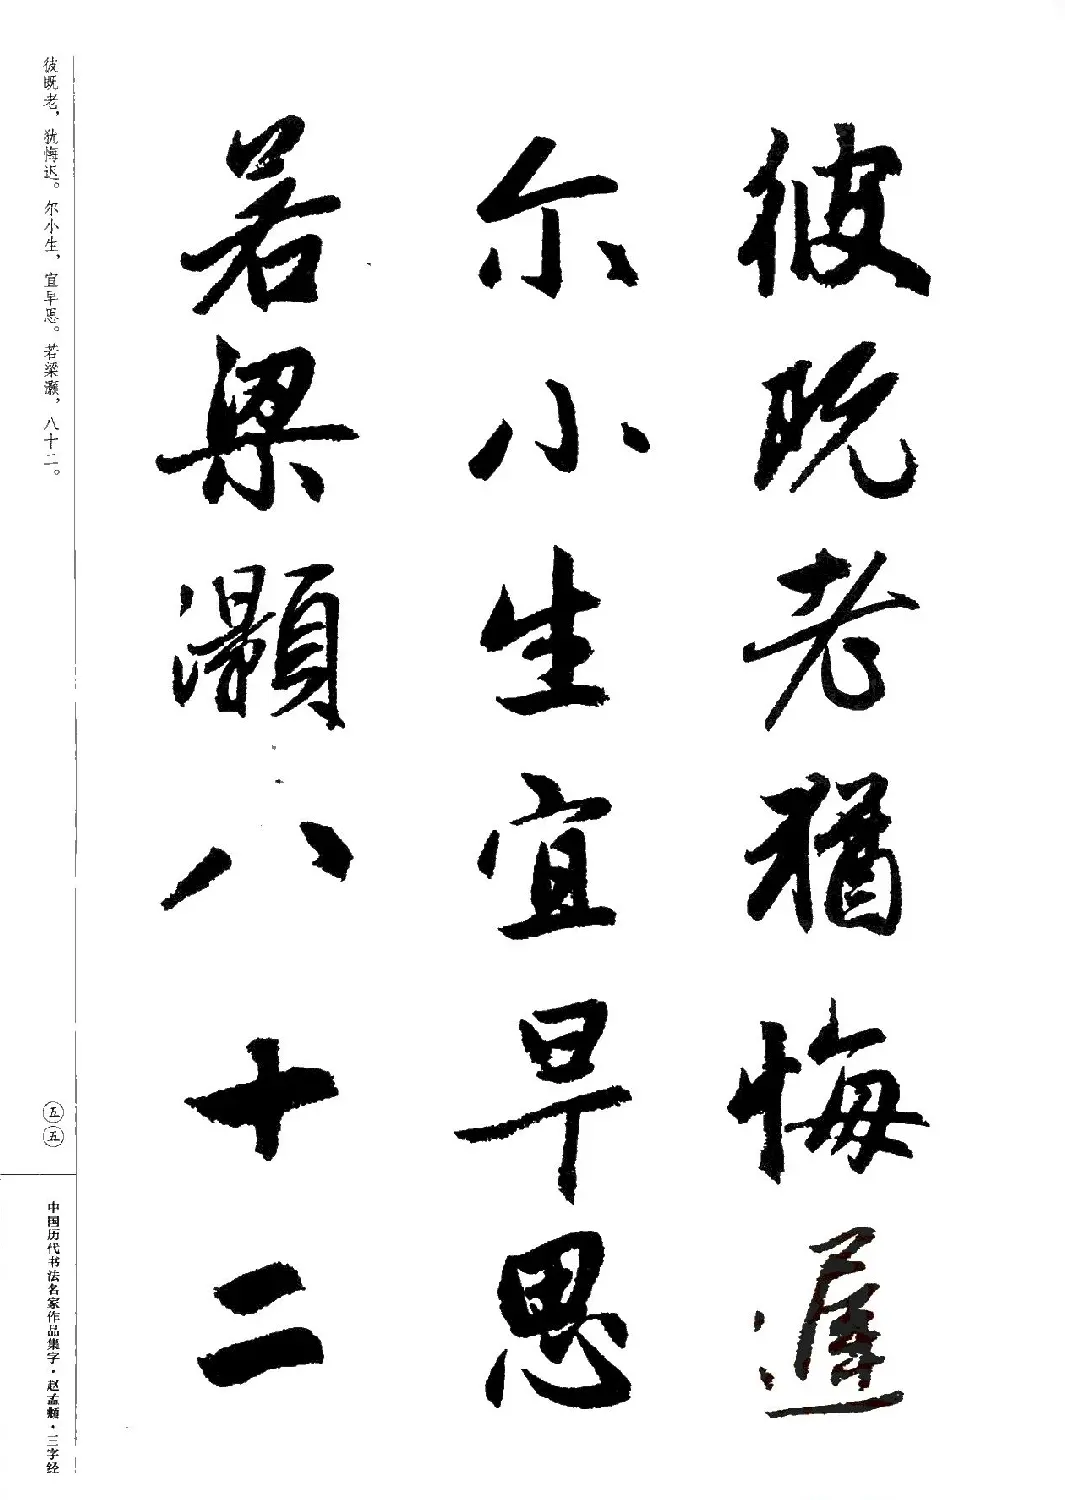 彼既老犹悔遲
尔小生宜早思
若梁灝八十二
彼既老，犹悔迟。尔小生，宜早思。若梁灏，八十二。
五五
中国历代书法名家作品集字·赵孟頫·三字经